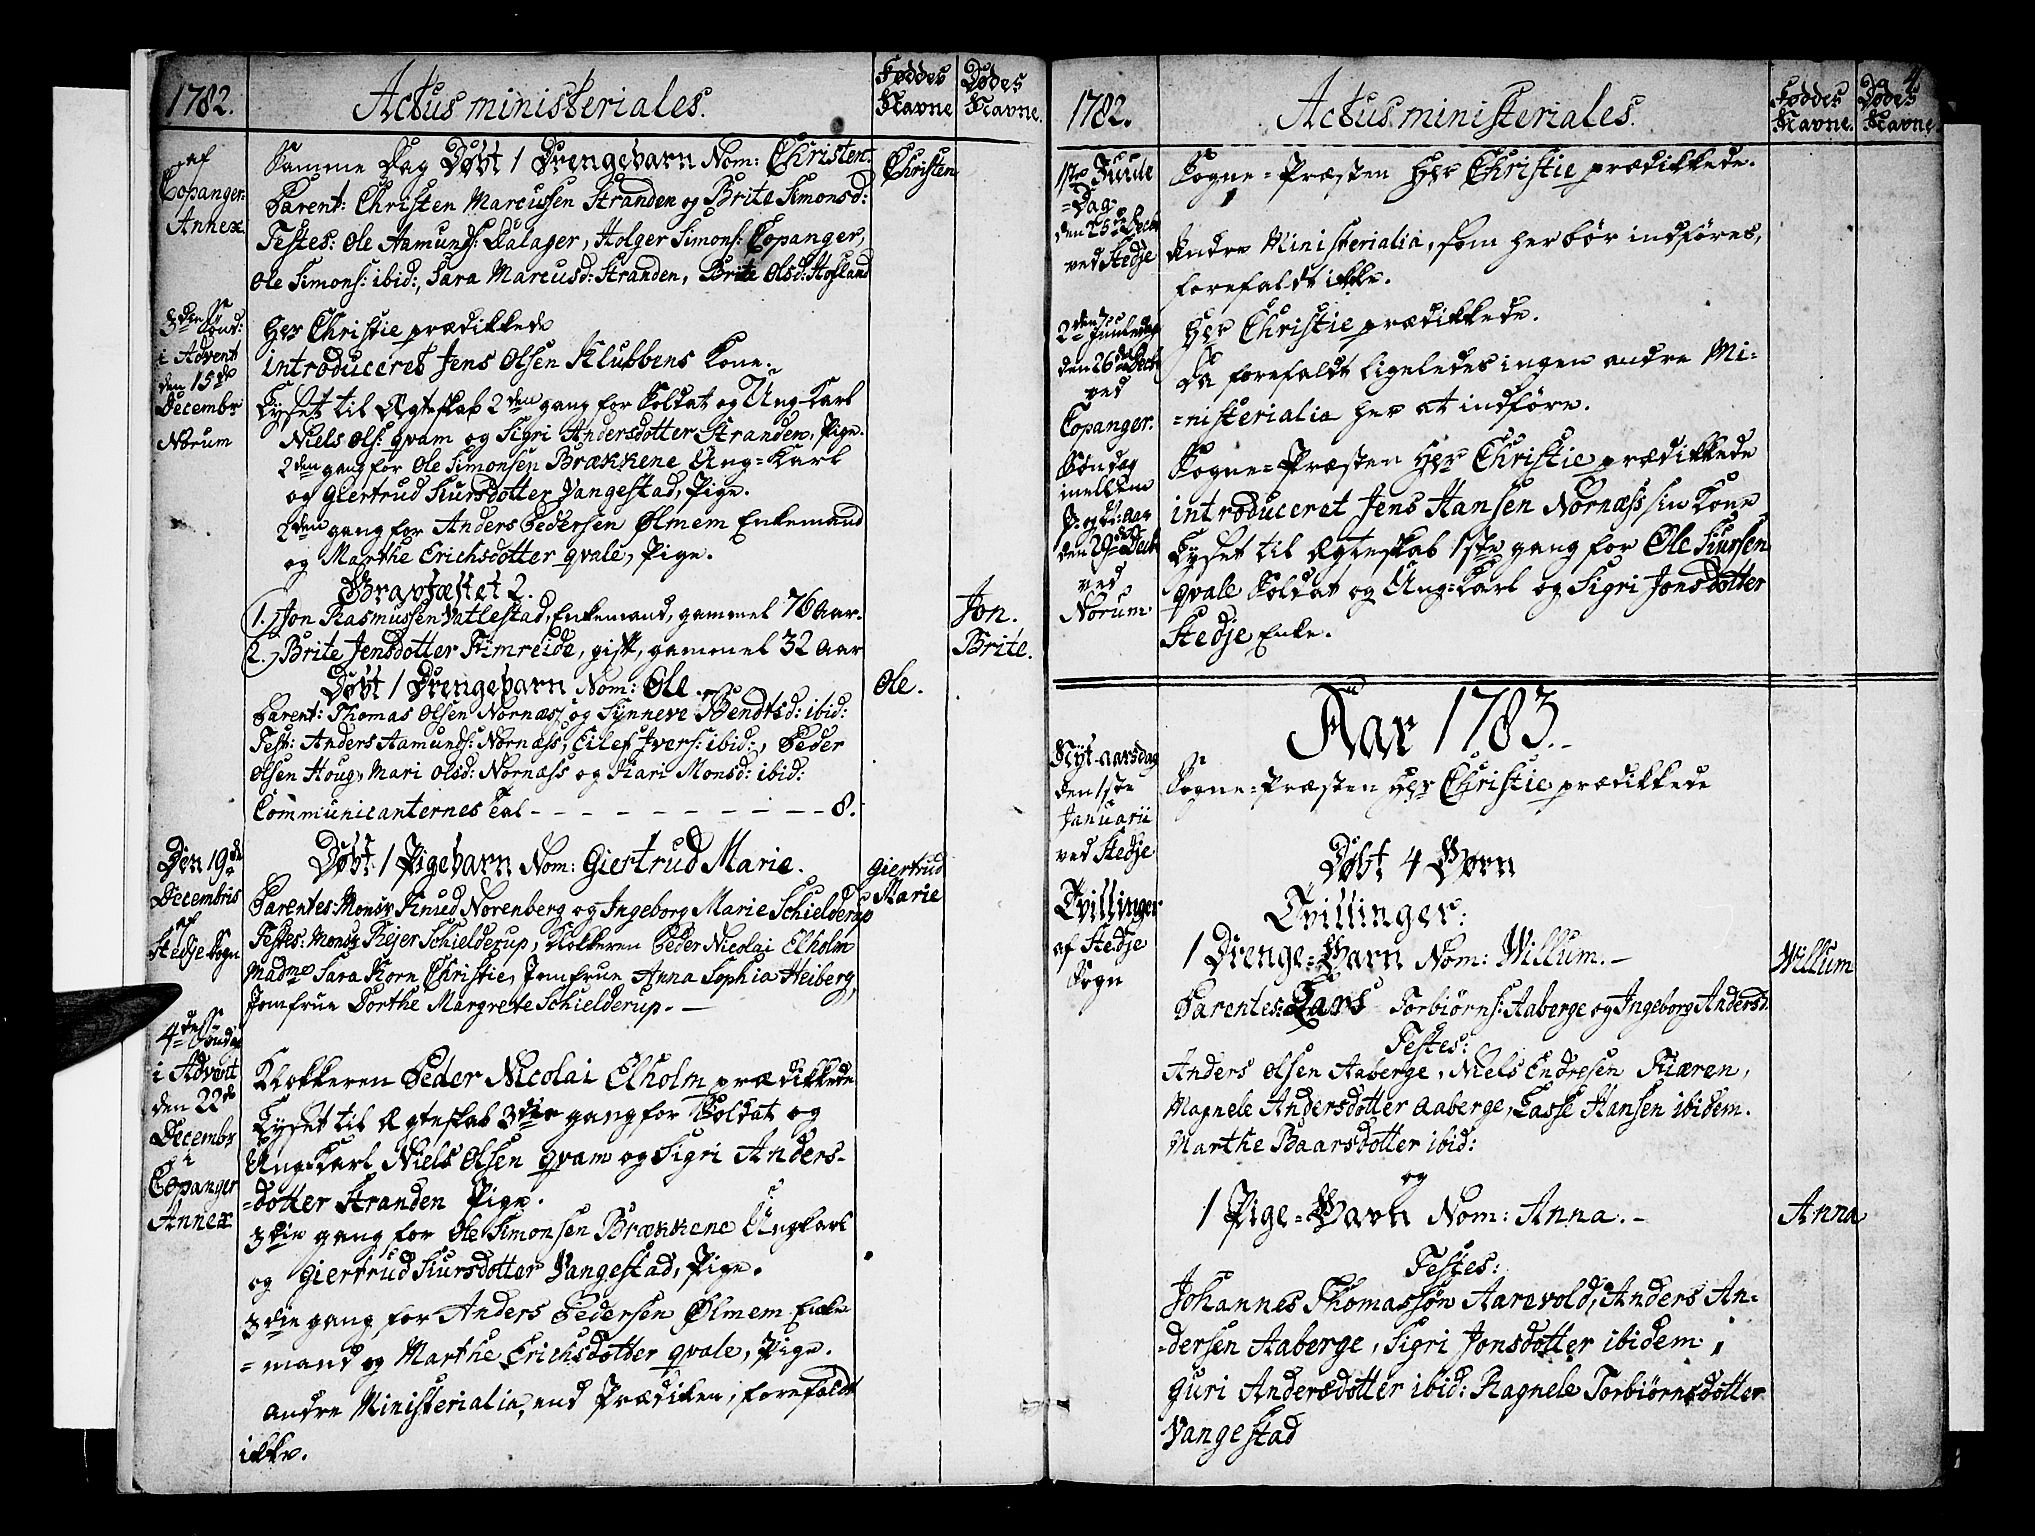 1782.
Actus ministeriales.
Föddes Navne
Dödes Navne.
af
Copanger
Annex
Samme Dag Döbt 1 Drengebarn Nom: Christen.
Christen
Parent: Christen Marcussen Stranden og Brite Simonsd:
Testes: Ole Aamunds: Dalager, Holger Simons: Copanger,
Ole Simons: ibid:, Sara Marcusd: Stranden, Brite Olsd: Hofland
3den Sönd:
i Advent
den 15de
Decembr
Norum
Her Christie prædikkede
introduceret Jens Olsen Klubbens Kone.
Lyset til Ægteskab 2den gang for Soldat og Ung-Karl
Niels Ols: qvam og Sigri Andersdotter Stranden, Pige.
2den gang for Ole Simonsen Brækkene Ung=Karl
og Giertrud Siursdotter Vangestad, Pige.
2den gang for Anders Pedersen Ølmem Enkemand
og Marthe Erichsdotter qvale, Pige.
Gravfæstet 2.
1. Jon Rasmussen Vatlestad, Enkemand, gammel 76 Aar.
Jon.
2. Brite Jensdotter Fimreide, gift, gammel 32 Aar
Brite.
Döbt 1 Drengebarn Nom: Ole.
Ole.
Parent: Thomas Olsen Nornæss og Synneve Bendtsd: ibid:
Test: Anders Aamunds: Nornæss, Eilef Ivers: ibid:, Peder
Olsen Houg, Mari Olsd: Nornæss og Kari Monsd: ibid:
Communicanternes Tal - - - - - - - - - 8.
Den 19de
Decembris
af
Stedje Sogn
Döbt 1 Pigebarn Nom: Giertrud Marie.
Giertrud
Marie
Parentes: Monsr Knud Norenberg og Ingeborg Marie Schielderup
Testes: Monsr Rejer Schielderup, Klokkeren Peder Nicolai Elholm
Madme Sara Korn Christie, Jomfrue Anna Sophia Heiberg,
Jomfrue Dorthe Margrete Schielderup. -
4de Söndag
i Advent
den 22de
Decembr
i
Copanger
Annex
Klokkeren Peder Nicolai Elholm prædikkede
Lyset til Ægteskab 3die gang for Soldat og
Ung-Karl Niels Olsen qvam og Sigri Anders-
=dotter Stranden Pige.
3die gang for Ole Simonsen Brækkene Ungkarl
og Giertrud Siursdotter Vangestad, Pige.
3die gang for Anders Pedersen Ølmem Enke
=mand og Marthe Erichsdotter qvale, Pige.
Andre Ministerialia, end Prædiken, forefaldt
ikke.
4
1782.
Actus ministeriales.
Föddes Navne.
Dödes Navne.
1ste Juule
=Dag
den 25de Decbr
ved Stedje
Sogne=Præsten Her Christie prædikkede.
Andre Ministerialia, som her bör indföres,
forefaldt ikke.
2den Juuledag
den 26de Decbr
ved
Copanger.
Her Christie prædikkede.
Da forefaldt ligeledes ingen andre Mi=
=nisterialia her at indföre.
Söndag
mellem
den 29de Decbr
ved
Norum
Sogne=Præsten Her Christie prædikkede
introduceret Jens Hansen Nornæss sin Kone
Lyset til Ægteskab 1ste gang for Ole Siursen
qvale Soldat og Ung=Karl og Sigri Jonsdotter
Stedje Enke.
Aar 1783.
Nyt-aarsdag
den 1ste
Januarii
ved Stedje
Sogne=Præsten Her Christie prædikkede
Döbt 4 Børn
Tvillinger
af Stedje
Sogn
Tvillinger:
1 Drenge=Barn Nom: Willum. -
Willum
Parentes: Lars Torbiörns: Aaberge og Ingeborg Andersd:
Testes:
Anders Olsen Aaberge, Niels Endresen Kiæren,
Magnele Andersdotter Aaberge, Lasse Hansen ibidem.
Marthe Baarsdotter ibid:
og
1 Pige=Barn Nom: Anna. -
Anna
Testes:
Johannes Thomassøn Aarevold, Anders An-
=dersen Aaberge, Sigri Jonsdotter ibidem,
Guri Andersdotter ibid: Ragnele Torbiörnsdotter
Vangestad